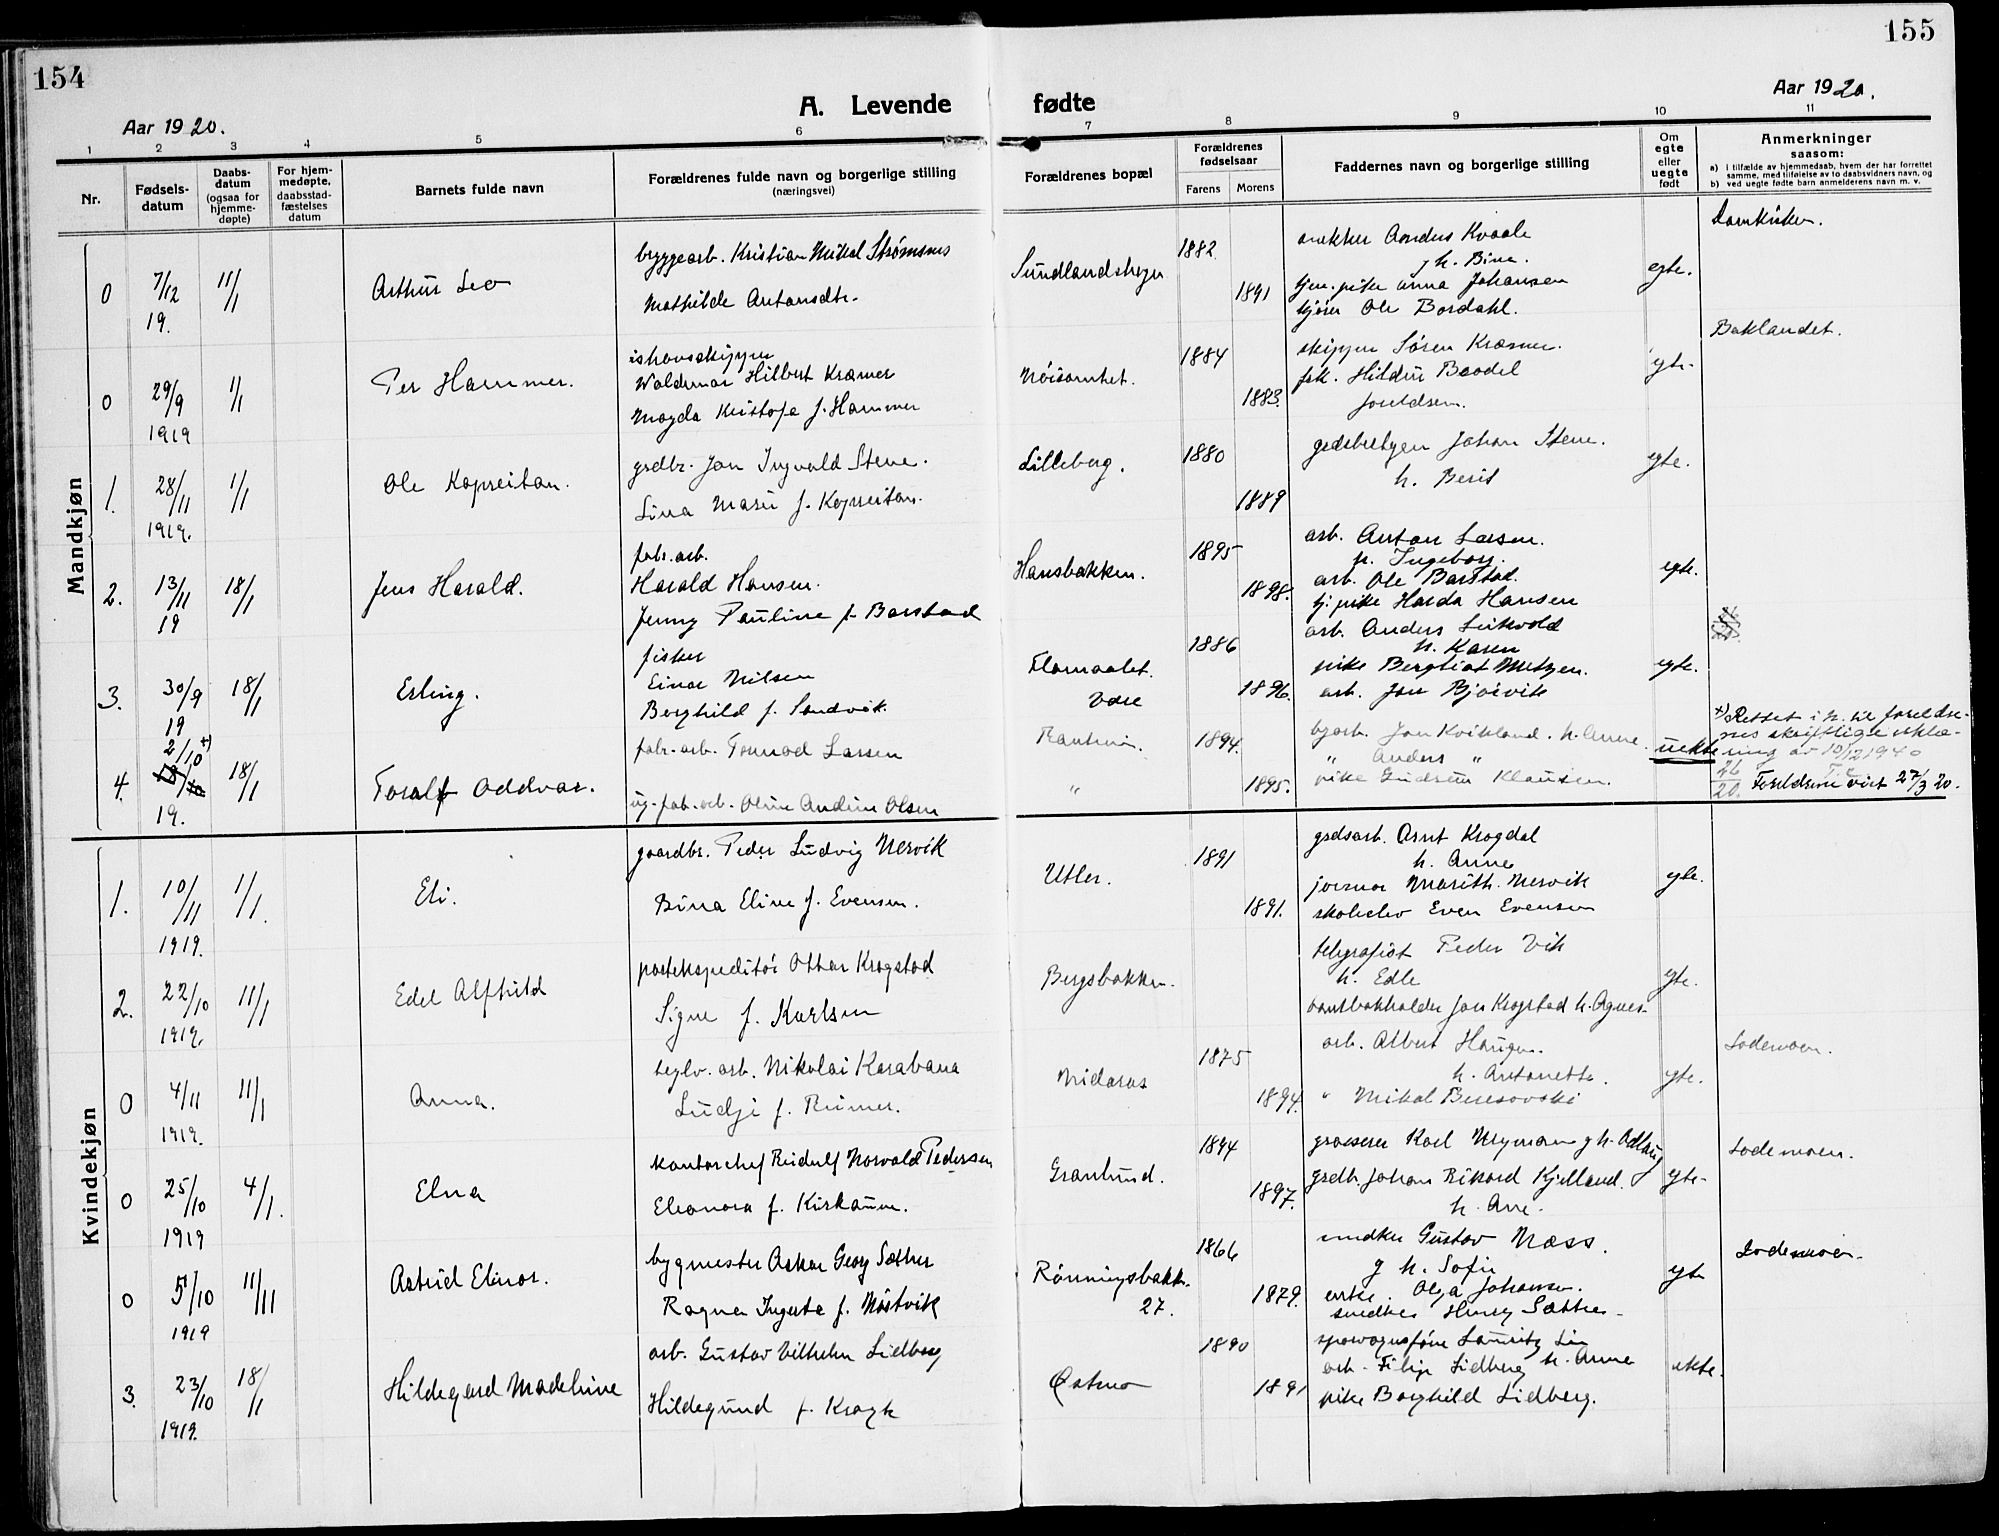 154
155
A. Levende fødte
Aar 1920.
Aar 1920.
1 2 3 4 5 6 7 8 9 10 11
Nr.
Fødsels-
datum
Daabs-
datum
(ogsaa for
hjemme-
døpte)
For hjem-
medøpte,
daabsstad-
fæstelses
datum
Barnets fulde navn
Forældrenes fulde navn og borgerlige stilling
(næringsvei)
Forældrenes bopæl
Forældrenes
fødselsaar
Farens Morens
Faddernes navn og borgerlige stilling
Om
egte
eller
uegte
født
Anmerkninger
saasom:
a) i tilfælde av hjemmedaab, hvem der har forrettet
samme, med tilføielse av to daabsvidners navn, og
b) ved uegte fødte barn anmelderens navn m. v.
Mandkjøn
0 7/12 19. 11/1 Arthur Leo
byggearb. Kristian Mikal Strømsnes
Mathilde Antonsdtr.
1882
1891
snekker Anders Kvaale
g h. Bina.
tjen. pike Anna Johansen
kjører Ole Bordahl.
egte.
Domkirken.
0 29/9 1919 1/1 Per Hammer.
ishavsskipper
Waldemar Hilbert Kræmer
Magda Kristofa f. Hammer
Nøisomhet.
1884
1883.
skipper Søren Kræmer.
frk. Hildur Baadel
foreldrene.
egte.
Baklandet.
1. 28/11 1919. 1/1 Ole Kopreitan.
grdbr. Jon Ingvald Stene.
Lina Marie f. Kopreitan.
Lilleberg.
1880
1889
gårdbestyrer Johan Stene.
h. Berit
egte.
2. 13/11 19 18/1 Jens Harald.
fabr. arb.
Harald Hansen.
Jenny Pauline f. Barstad
Hansbakken.
1895
1898.
arb. Anton Larsen.
h. Ingeborg.
arb. Ole Barstad.
tj. pike Harda Hansen
egte.
3. 30/9 19 18/1 Erling.
fisker
Einar Nilsen
Berghild f. Sandvik.
Være
1886
1896.
arb. Anders Leikvold
h. Karen
pike Bergliot Metzen.
arb. Jon Bjørvik
egte.
4. 2/10 x) 19. 18/1 Toralf Oddvar.
fabr. arb. Tormod Larsen
ug. fab. arb. Oline Andrine Olsen
Ranheim.
"
1894.
1895.
bgarb. Jon Kvikland. h. Anne.
" Anders "
pike Gudrun Klausen.
uekte
x) Rettet i h. til foreldre-
nes skriftlige erklæ-
ring av 10/12 1940
26/20. Foreldrene viet 27/3 20.
Kvindekjøn
1. 10/11 1919. 1/1. Eli.
gaardbr. Peder Ludvig Nervik
Bina Eline f. Evensen.
Utler.
1891
1891.
grdsarb. Arnt Krogdal
h. Anne
jormor Marith. Nervik
skoleelev Even Evensen
egte.
2. 22/10 1919. 11/1 Edel Alfhild
postekspeditør Ottar Krogstad
Signe f. Karlsen
Bergsbakken.
telegrafist Peder Vik
h. Edle
bankbokholder Jon Krogstad h. Agnes
egte.
0 4/11 1919. 11/1 Anna.
teglv. arb. Nikolai Karabana
Ludji f. Rümer.
Nidaros
1875
1894.
arb. Albert Haugen.
h. Antonette.
" Mikal Beresovski
egte.
Lademoen.
0 25/10 1919 4/1. Elna
kontorchef Reidulf Norvald Pedersen
Eleonora f. Kirkaune.
Granlund.
1894
1897.
grosserer Karl Nyman g h. Odlaug
grdbr. Johan Rikard Kjelland.
h. Ane.
egte.
Lademoen.
0 5/10 1919 11/11 Astrid Elinor.
bygmester Oskar Georg Sæther
Ragna Ingerta f. Nøstvik
Rønningsbakk.
27.
1866
1879.
smedker Gustav Næss.
g h. Sofie
enke. Olga Johansen.
snedker Henry Sæther
egte
Lademoen.
3. 23/10 1919. 18/1 Hildegard Madeleine
arb. Gustav Vilhelm Lidberg
Hildegund f. Krogh
Østmo
1890
1891
sporvognsfører Lauritz Lie
arb. Filip Lidberg h. Anne
pike Borghild Lidberg.
ekte.